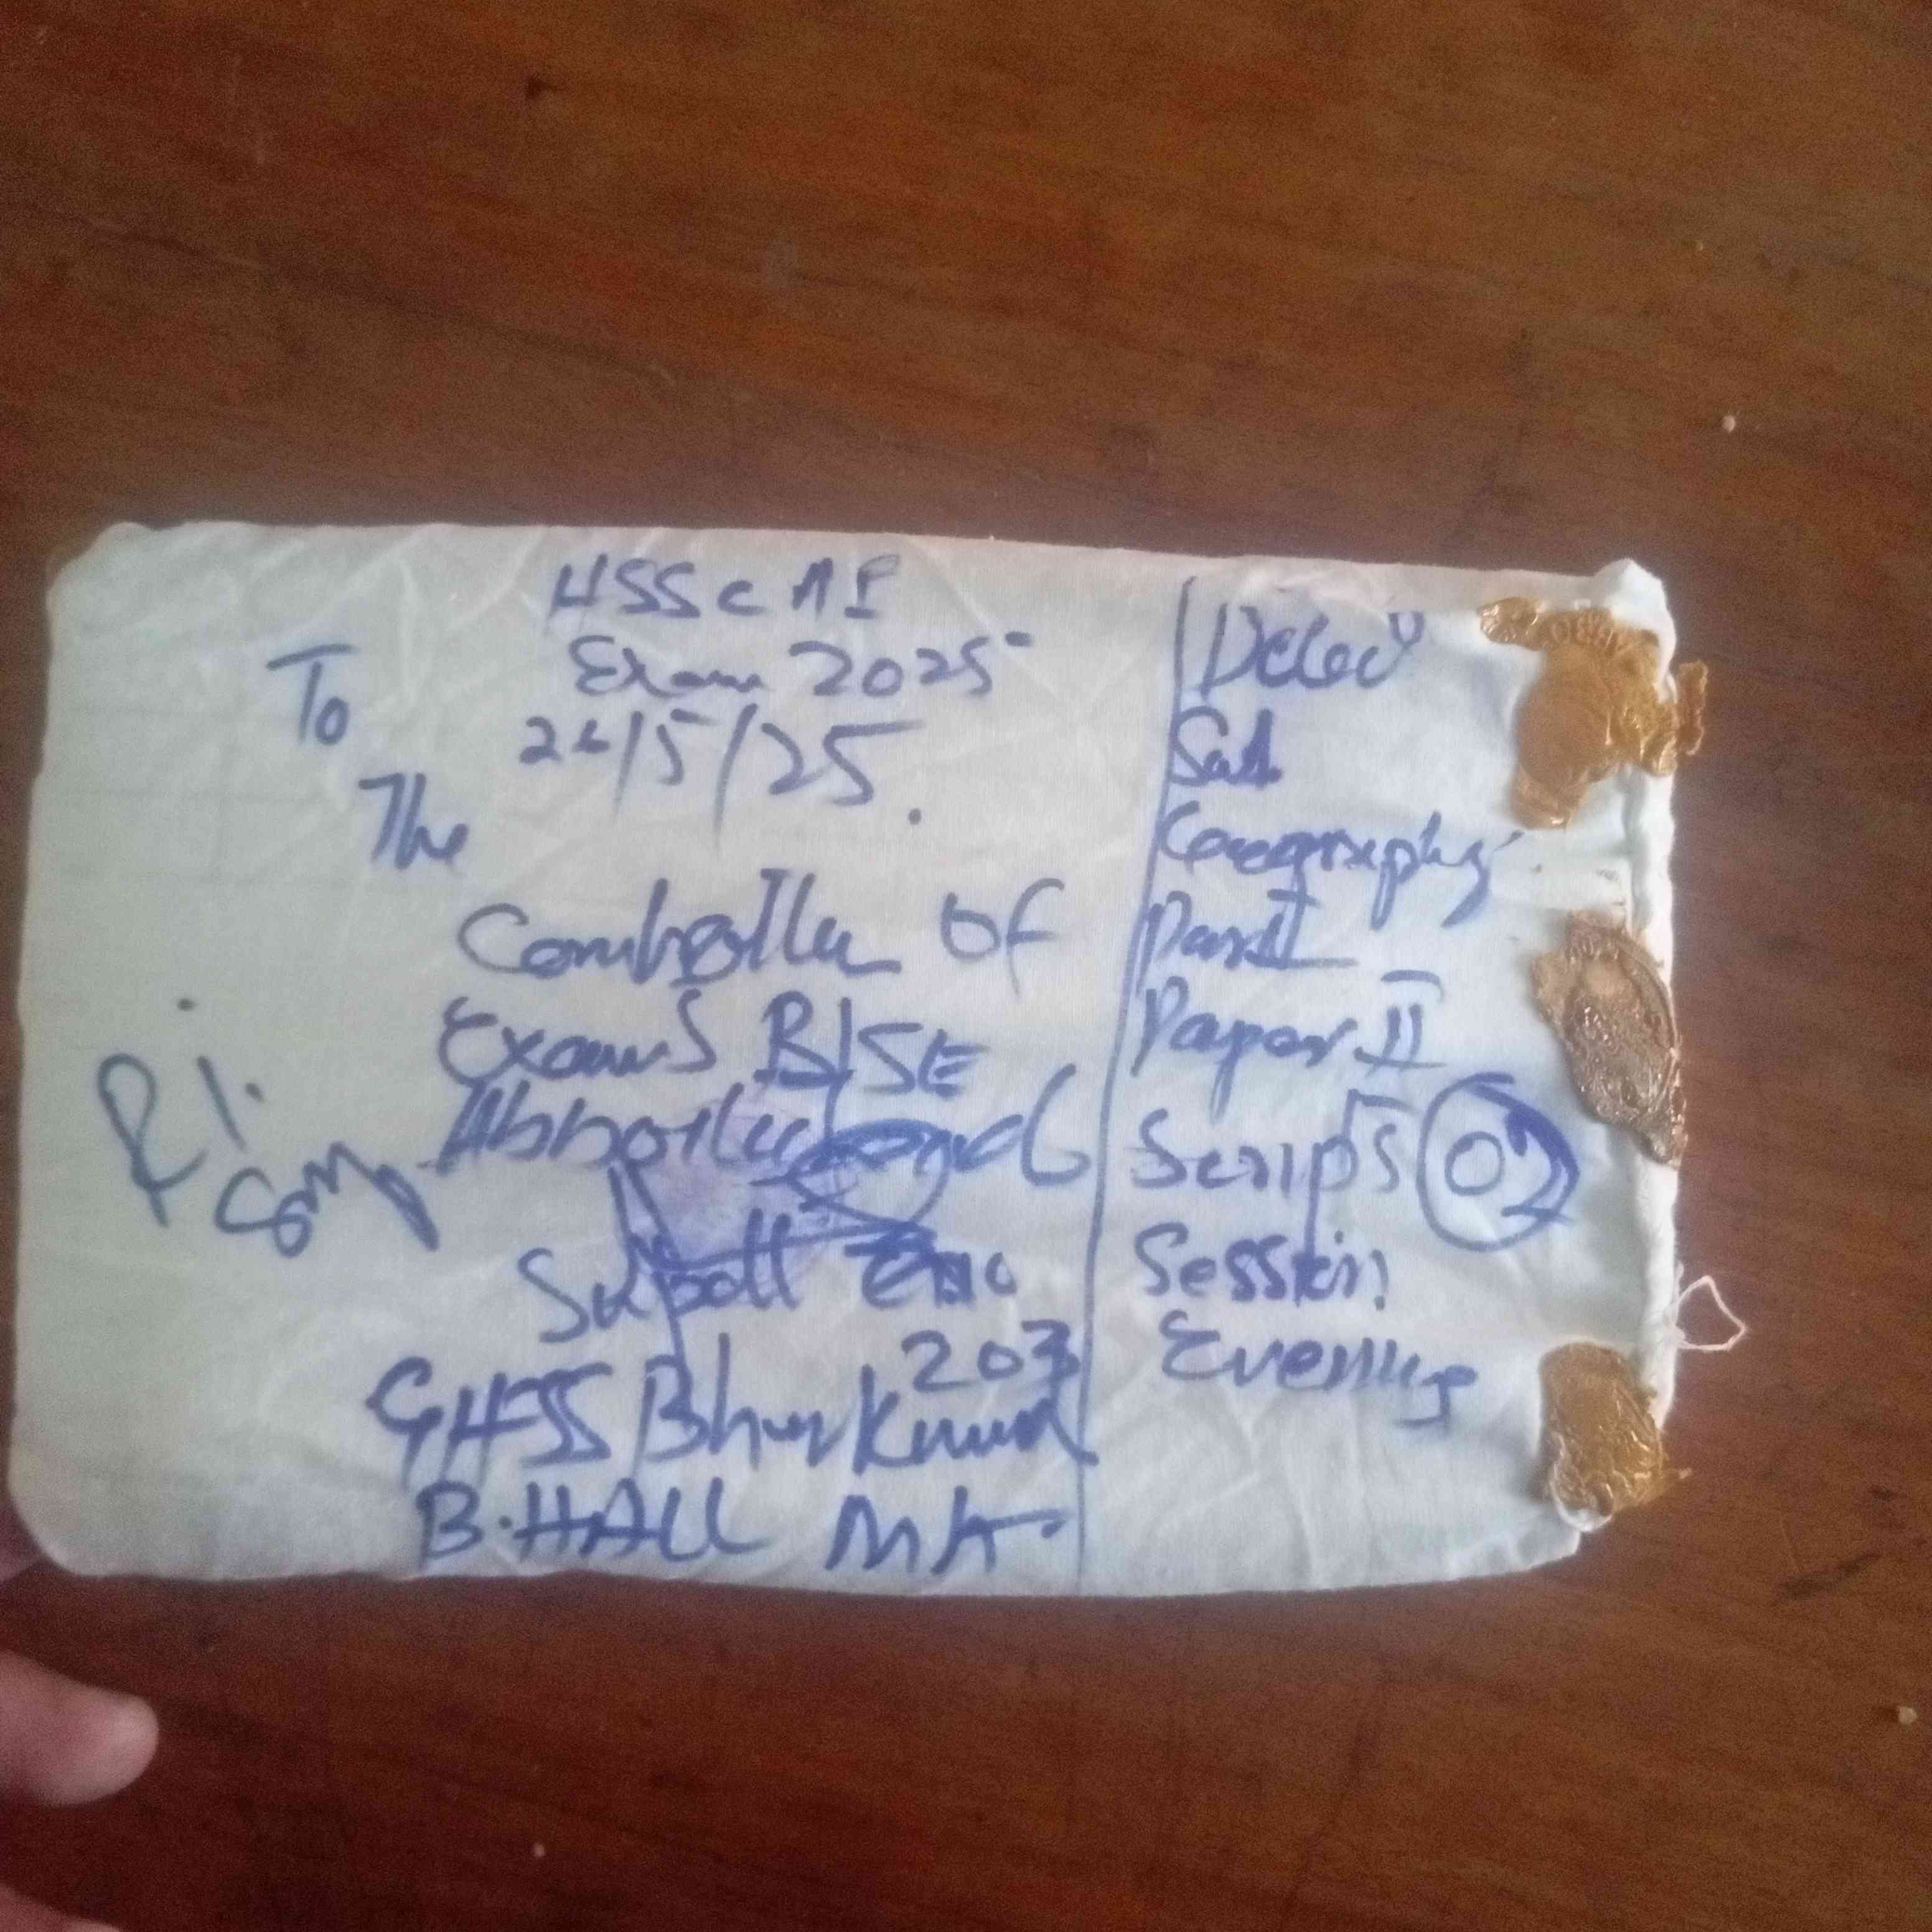 HSSC AI
Exam 2025
To
24/5/25.
The
Controller OF
Exams BISE
Abbottabad
Supdtt
203
GHSS Bhurkund
B.HALL MA
Dated
Sub
Geography
Part I
Paper II
Scripts 02
Session
Evening